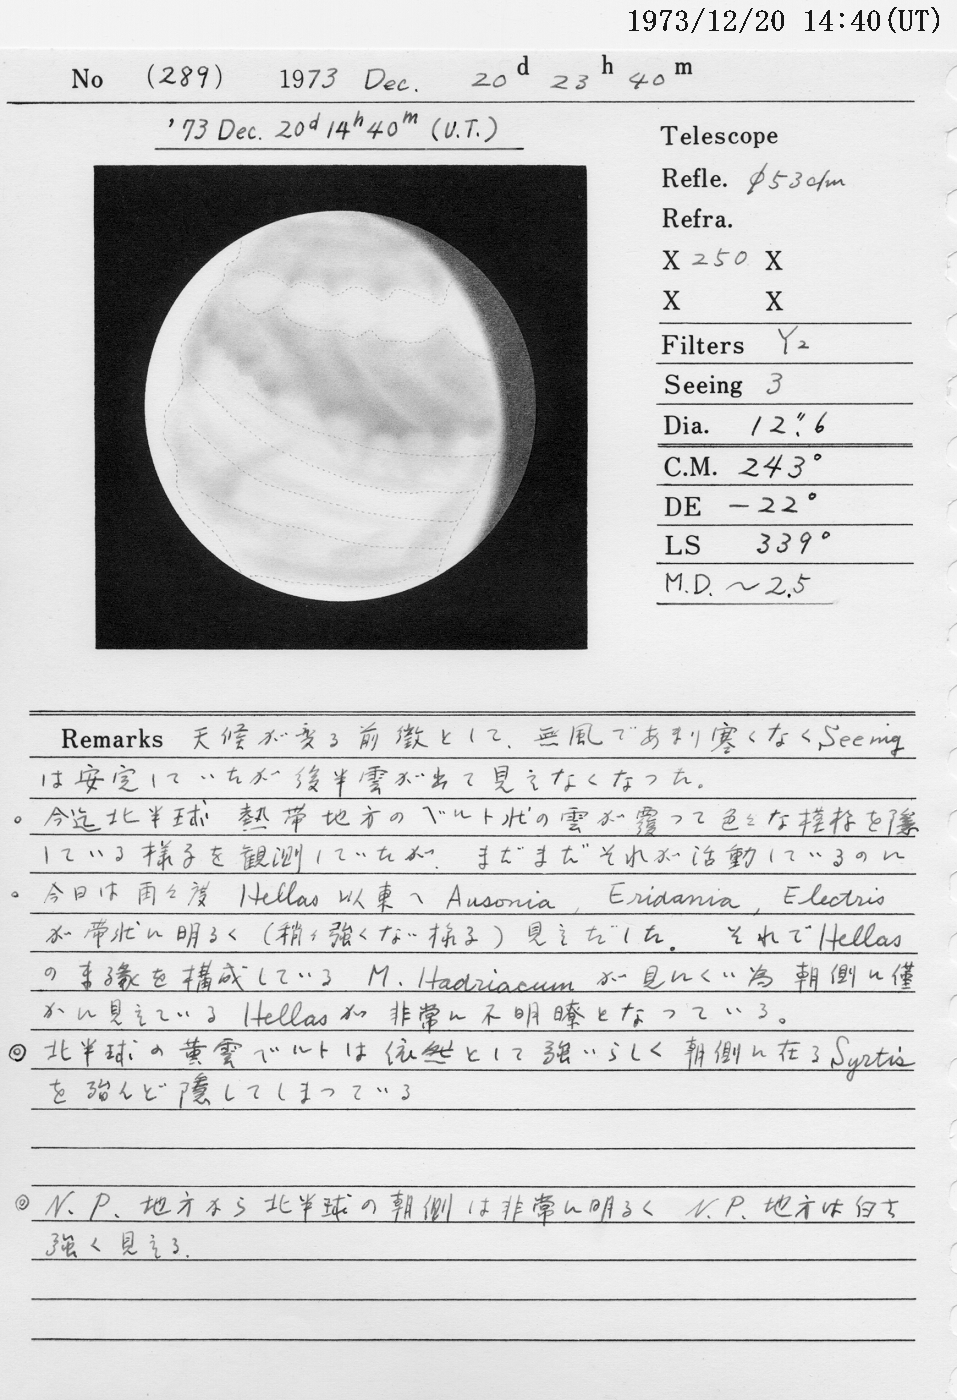 1973/12/20 14:40(UT)
No (289) 1973 Dec. 20d 23h 40m
'73 Dec. 20d 14h 40m (U.T.)
Telescope
Refle. φ53c/m
Refra.
X 250 X
X X
Filters Y2
Seeing 3
Dia. 12".6
C.M. 243°
DE -22°
LS 339°
M.D. ~2.5
Remarks 天候が変る前徴として、無風であまり寒くなくSeeing
は安定していたが後半雲が出て見えなくなった。
。今迄北半球 熱帯地方のベルト状の雲が覆って色々な模様を隠
している様子を観測していたが、まだまだそれが活動しているのに
。今日は南々度 Hellas以東へ Ausonia, Eridania, Electris
が帯状に明るく(稍々強くない様子)見えだした。 それでHellas
の東縁を構成している M. Hadriacum が見にくい為 朝側に僅
かに見えている Hellasが 非常に不明瞭となっている。
◎ 北半球の黄雲ベルトは依然として強いらしく 朝側に在るSyrtis
を殆んど隠してしまっている
◎ N.P. 地方から北半球の朝側は非常に明るく N.P. 地方は白さ
強く見える.